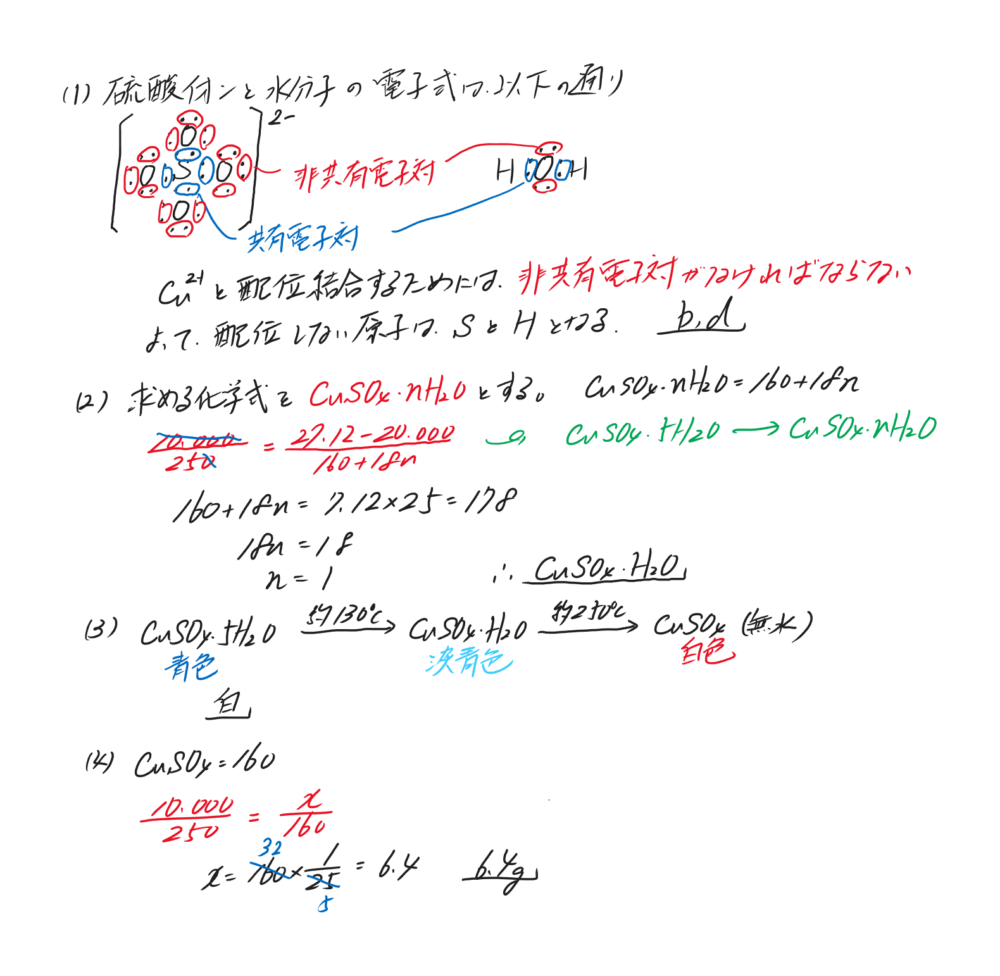 (1) 硫酸イオンと水分子の電子式は、以下の通り
[O O S O O]2-
非共有電子対
H O H
共有電子対
Cu2+と配位結合するためには、非共有電子対がなければならない
よって、配位しない原子は、SとHとなる. b,d
(2) 求める化学式をCuSO4・nH2Oとする。 CuSO4・nH2O=160+18n
10.000/250 = 27.12-20.000/160+18n CuSO4・5H2O → CuSO4・nH2O
160+18n = 7.12×25 = 178
18n = 18
n = 1 ∴ CuSO4・H2O
(3) CuSO4・5H2O 約130℃→ CuSO4・H2O 約250℃→ CuSO4 (無水)
青色 淡青色 白色
白
(4) CuSO4=160
10.000/250 = x/160
32
x = 160×1/25 = 6.4 6.4g
5